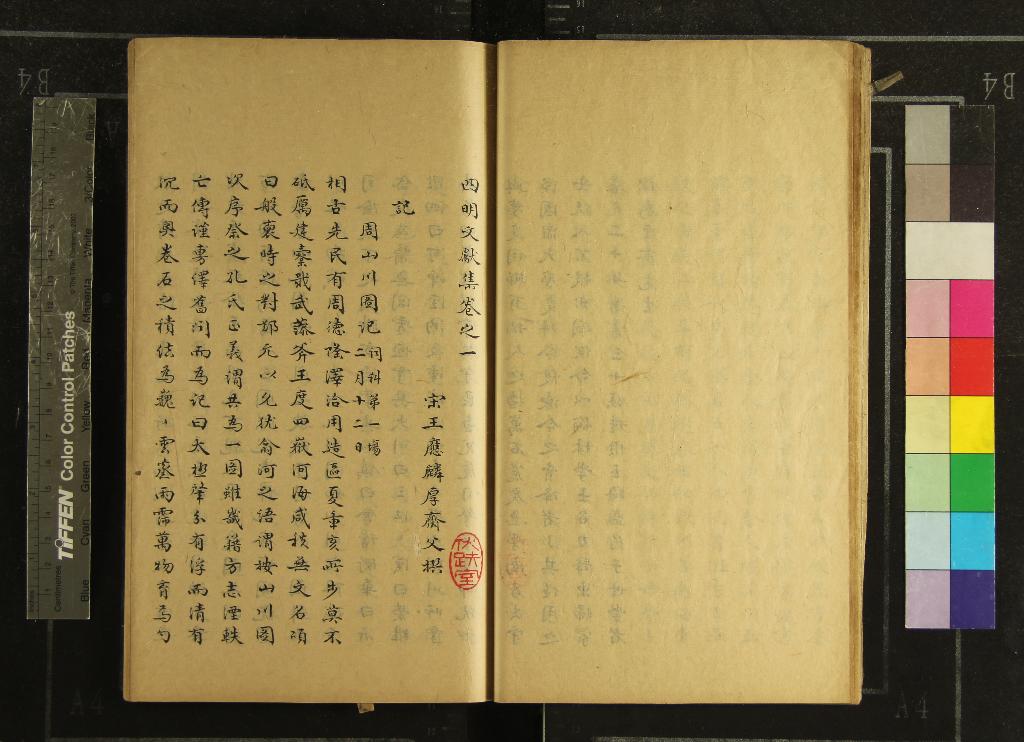 四明文獻集卷之一
宋王應麟厚齋父撰
記
周山川圖記 詞科第一場
二月十二日
相古先民有周德隆澤洽用造區夏章亥所步莫不
砥厲建櫜戢武藻斧王度四嶽河海咸秩無文名頌
曰般裒時之對鄒允以允犹翕河之語謂按山川圖
次序祭之孔氏正義謂共為一圖雖載籍方志湮軼
亡傳謹專繹舊聞而為記曰太極肇分有浮而清有
沉而奧卷石之積結為巍山雲蒸雨霈萬物育焉勺
伏跗室
TIFFEN Color Control Patches
Blue
Cyan
Green
Yellow
Red
Magenta
White
3/Color
Black
Centimetres
Inches
B4
B4
A4
A4